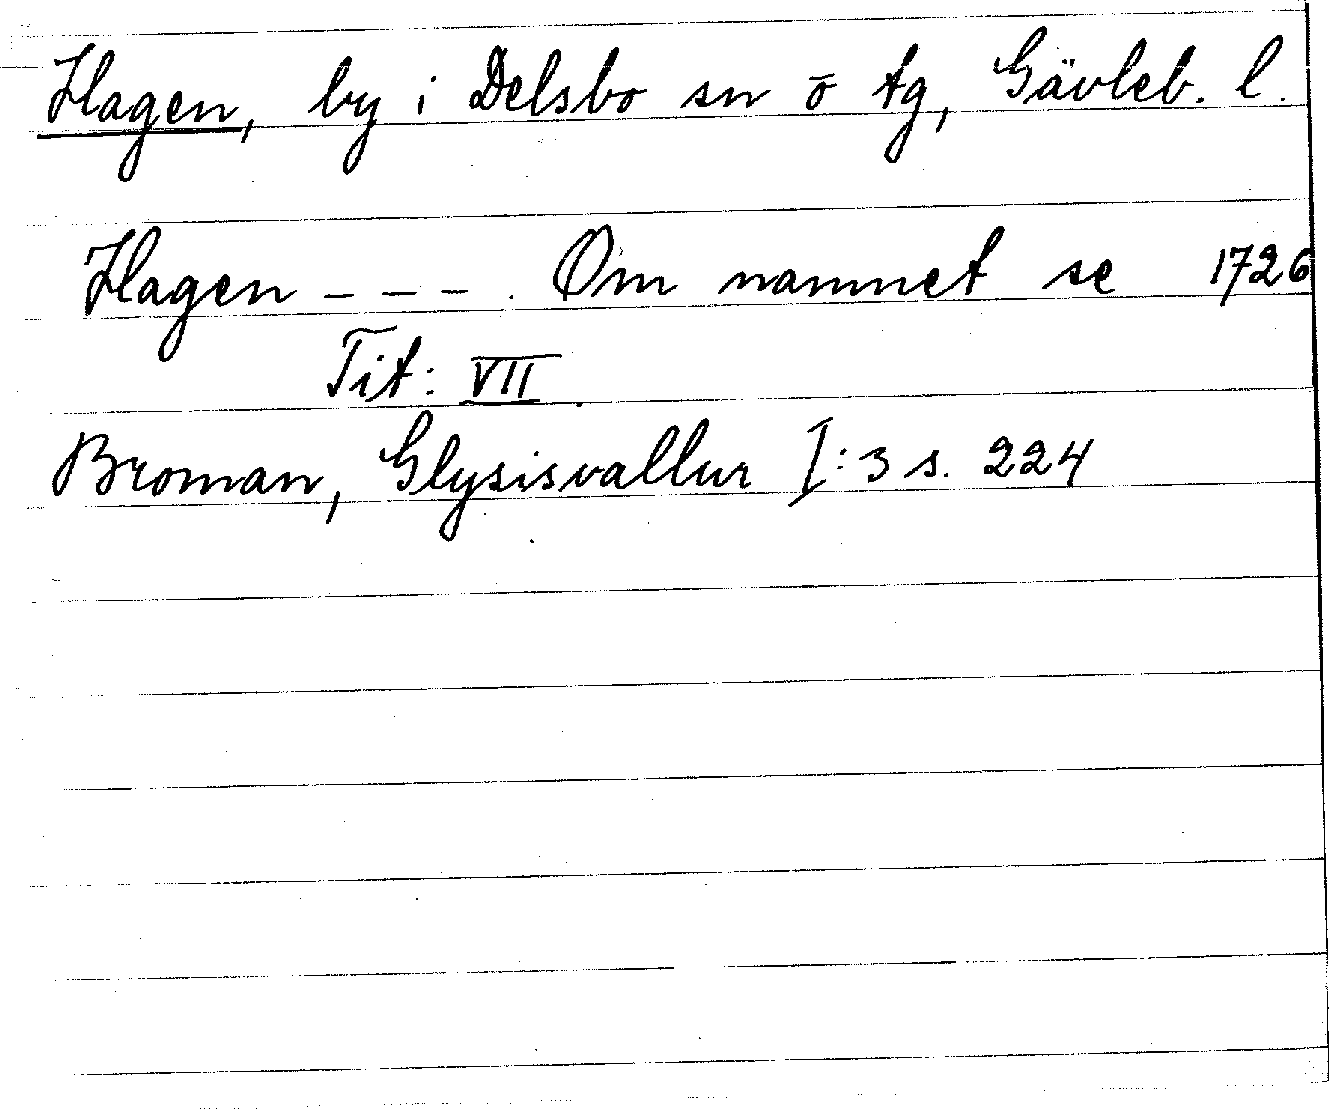 Hagen, by i Delsbo sn o tg, Gävleb. l.
Hagen - - - . Om namnet se 1726
Tit: VII.
Broman, Glysisvallur I:3 s. 224